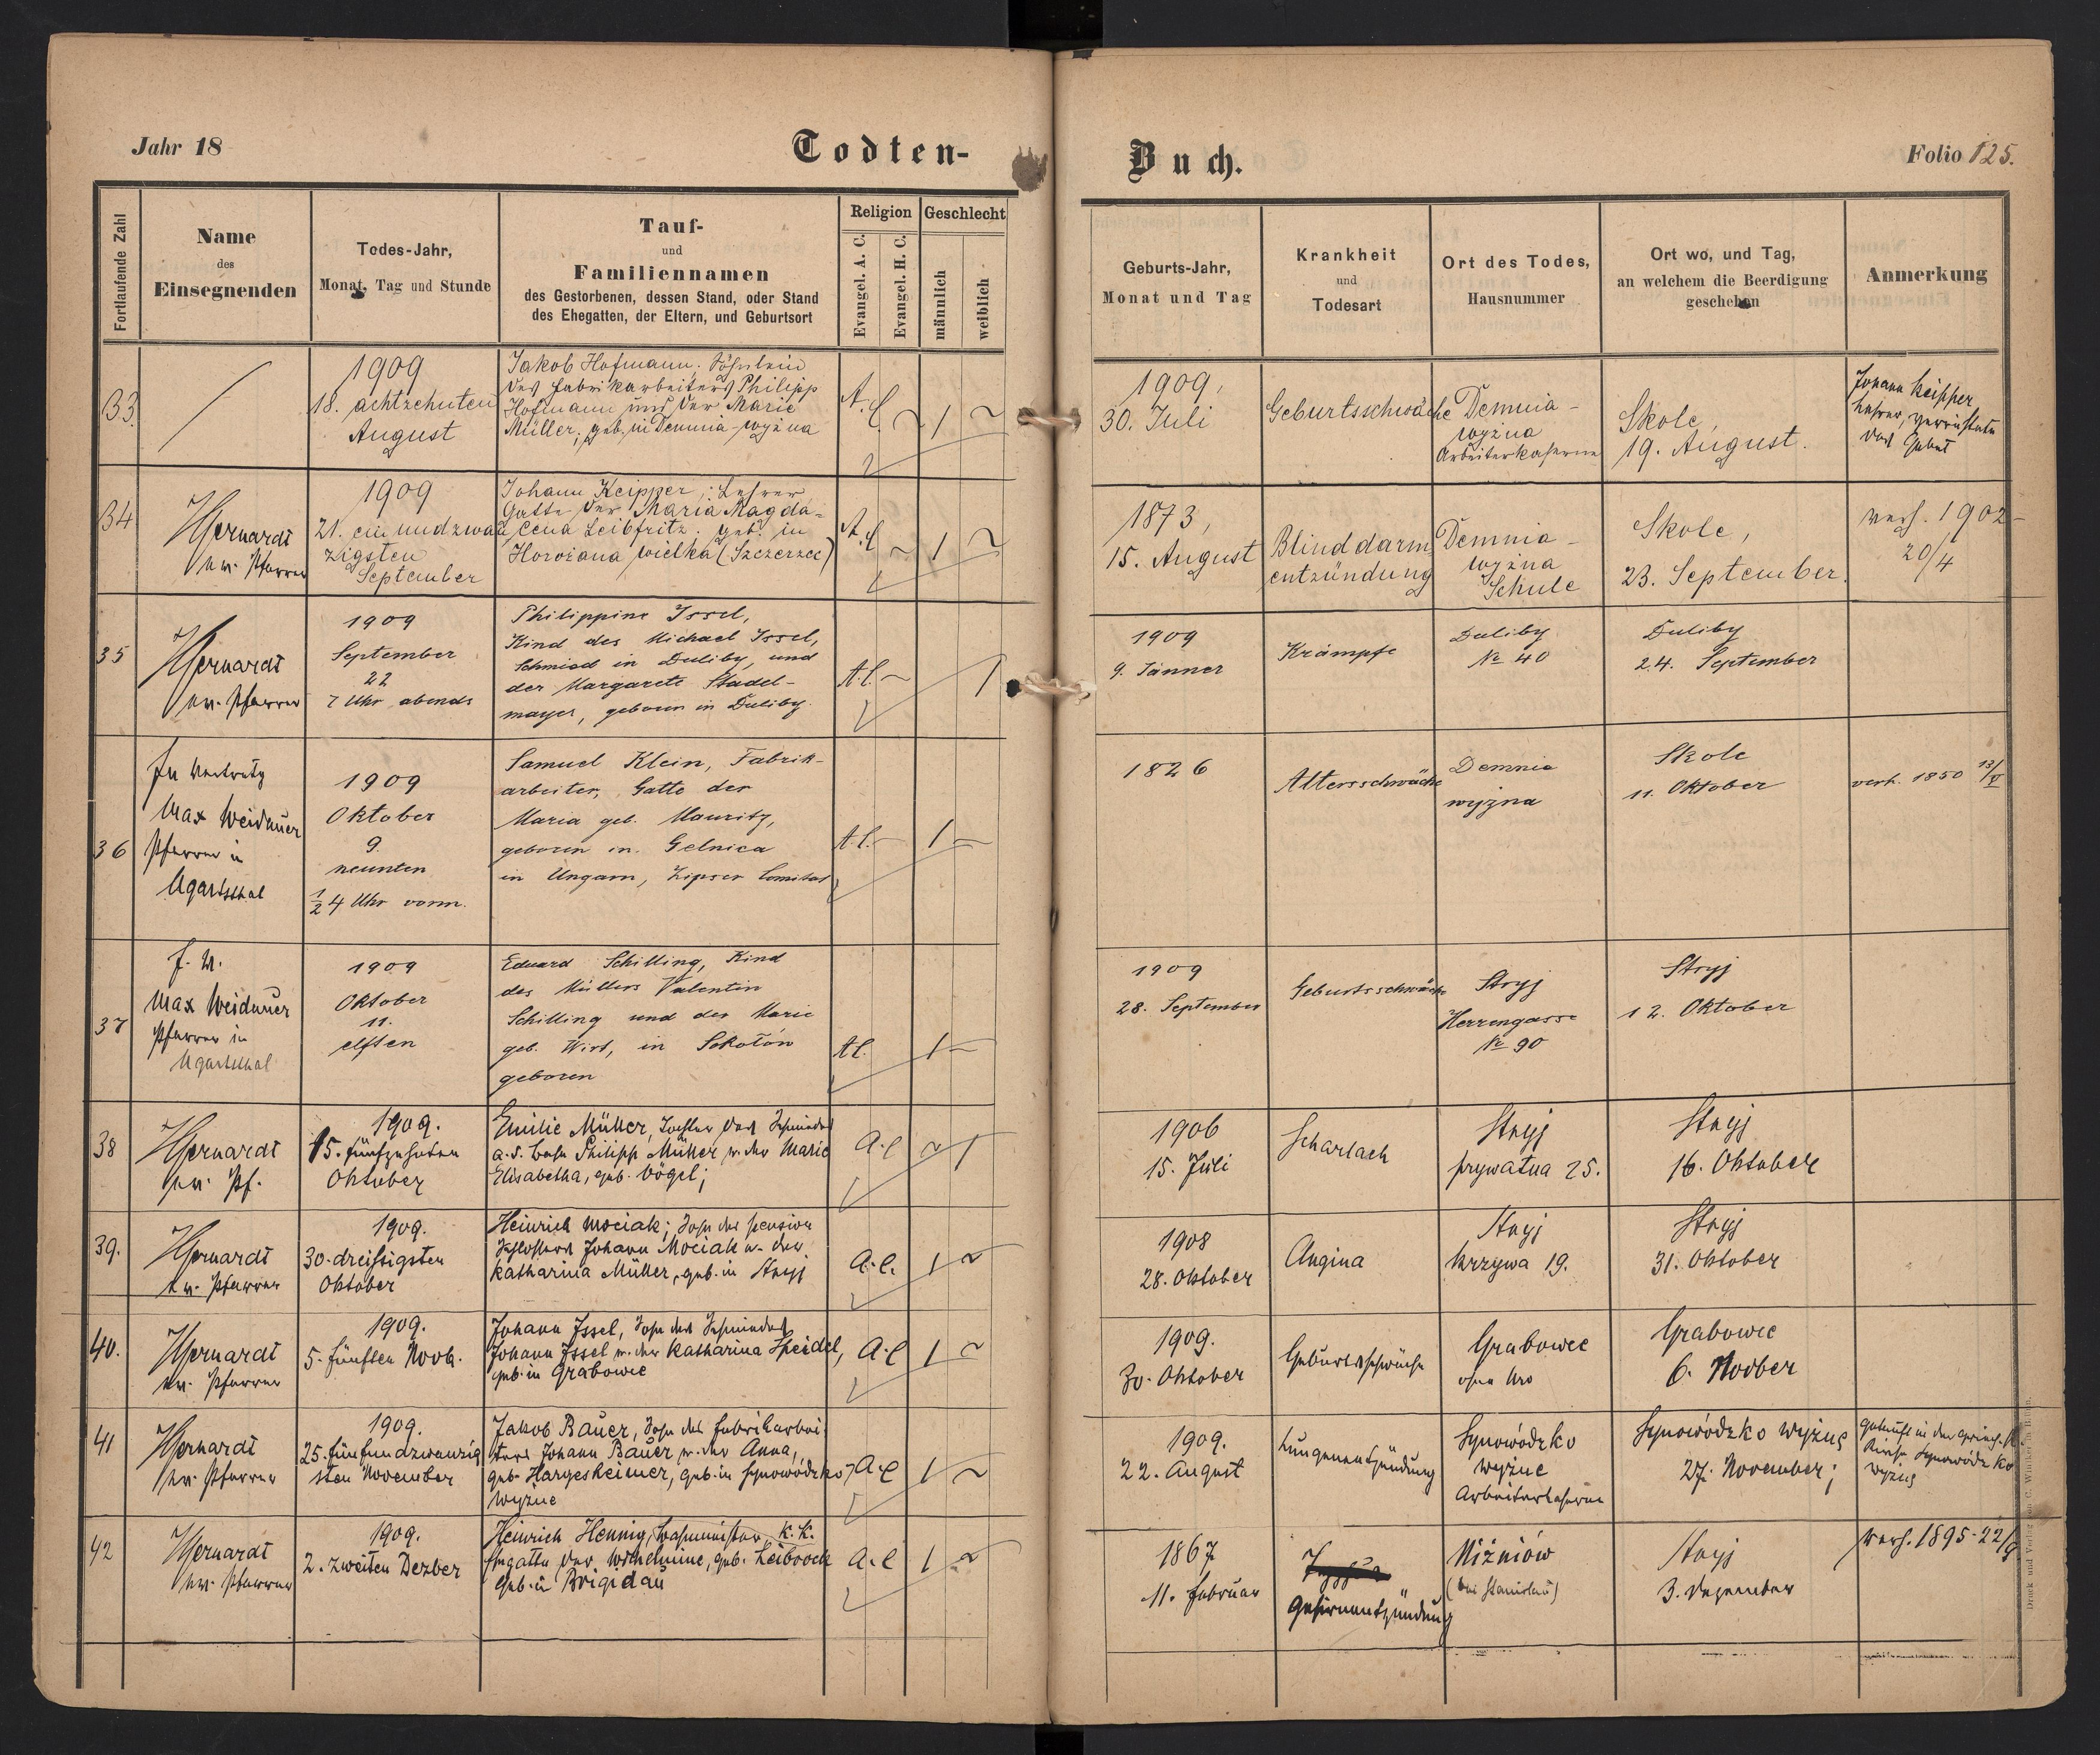 Jahr 18
Todten-
Buch.
Folio 125.
Fortlaufende Zahl
Name
des
Einsegnenden
Todes-Jahr,
Monat, Tag und Stunde
Tauf-
und
Familiennamen
des Gestorbenen, dessen Stand, oder Stand
des Ehegatten, der Eltern, und Geburtsort
Religion
Evangel. A. C.
Evangel. H. C.
Geschlecht
männlich
weiblich
Geburts-Jahr,
Monat und Tag
Krankheit
und
Todesart
Ort des Todes,
Hausnummer
Ort wo, und Tag,
an welchem die Beerdigung
geschehen
Anmerkung
33.
1909
18. achtzehnten
August
Jakob Hofmann, Söhnlein
des Fabrikarbeiters Philipp
Hofmann und der Marie
Müller; geb. in Demnia-wyżna
A.C. ~ 1 ~
1909,
30. Juli
Geburtsschwäche
Demnia-
wyżna
Arbeiterkaserne
Skole,
19. August.
Johann Keipper
Lehrer, verrichtete
das Gebet
34
1909
21. einundzwan
zigsten
September
Johann Keipper, Lehrer
Gatte der Maria Magda-
lena Leibfritz, geb. in
Horożana wielka (Szczerzec)
A.C. ~ 1 ~
ev. Pfarrer
1873,
15. August
Blinddarm
entzündung
Demnia-
wyżna
Schule
Skole,
23. September.
verh. 1902-
20/4
35
ev. Pfarrer
1909
September
22
7 Uhr abends
Philippine Issel,
Kind des Michael Issel,
Schmied in Duliby, und
der Margarete Stadel-
mayer, geboren in Duliby.
A.C. ~ 1
1909
9. Jänner
Krämpfe
Duliby
№ 40
Duliby
24. September
36
In Vertretg
Max Weidauer
Pfarrer in
Ugartsthal
1909
Oktober
9.
neunten
1/2 4 Uhr vorm.
Samuel Klein, Fabrik-
arbeiter, Gatte der
Maria geb. Mauritz,
geboren in Gelnica
in Ungarn, Zipser Comitat
A.C. ~ 1 ~
1826
Altersschwäche
Demnia
wyżna
Skole
11. Oktober
verh. 1850 13/V
37
J. V.
Max Weidauer
Pfarrer in
Ugartsthal
1909
Oktober
11.
elften
Eduard Schilling, Kind
des Müllers Valentin
Schilling und der Marie
geb. Wirt, in Sokołów
geboren
A.C. 1 ~
1909
28. September
Geburtsschwäche
Stryj
Herrengasse
№ 90
Stryj
12. Oktober
38
ev. Pf.
1909.
15. fünfzehnten
Oktober
Emilie Müller, Tochter des Schmiedes
a. d. Bahn Philipp Müller u. der Marie
Elisabetha, geb. Vögel;
A.C ~ 1
1906
15. Juli
Scharlach
Stryj
prywatna 25.
Stryj
16. Oktober
39.
ev. Pfarrer
1909.
30. dreißigsten
Oktober
Heinrich Mociak; Sohn des pension
Schlossers Johann Mociak u. der
Katharina Müller, geb. in Stryj
A.C. 1 ~
1908
28. Oktober
Angina
Stryj
krzywa 19.
Stryj
31. Oktober
40.
ev. Pfarrer
1909.
5. fünften Novb.
Johann Issel, Sohn des Schmiedes
Johann Issel u. der Katharina Speidel,
geb. in Grabowce
A.C 1 ~
1909.
30. Oktober
Geburtsschwäche
Grabowce
ohne Nro
Grabowce
6. Novber
41
ev. Pfarrer
1909.
25. fünfundzwanzig
sten November
Jakob Bauer, Sohn des Fabrikarbei-
ters Johann Bauer u. der Anna,
geb. Hargesheimer, geb. in Synowódzko-
wyżne
A.C 1 ~
1909.
22. August
Lungenentzündung
Synowódzko
wyżne
Arbeiterkaserne
Synowódzko wyżne
27. November;
getauft in der griech. k.
Kirche Synowódzko
wyżne
42
ev. Pfarrer
1909.
2. zweiten Dezber
Heinrich Hennig, Bahnmeister, K. K.
Ehegatte der Wilhelmine, geb. Leibrock
geb. in Brigidau
A.C 1 ~
1867
11. Februar
Gehirnentzündung
Niżniów
(bei Stanislau)
Stryj
3. Dezember
verh. 1895-22/9